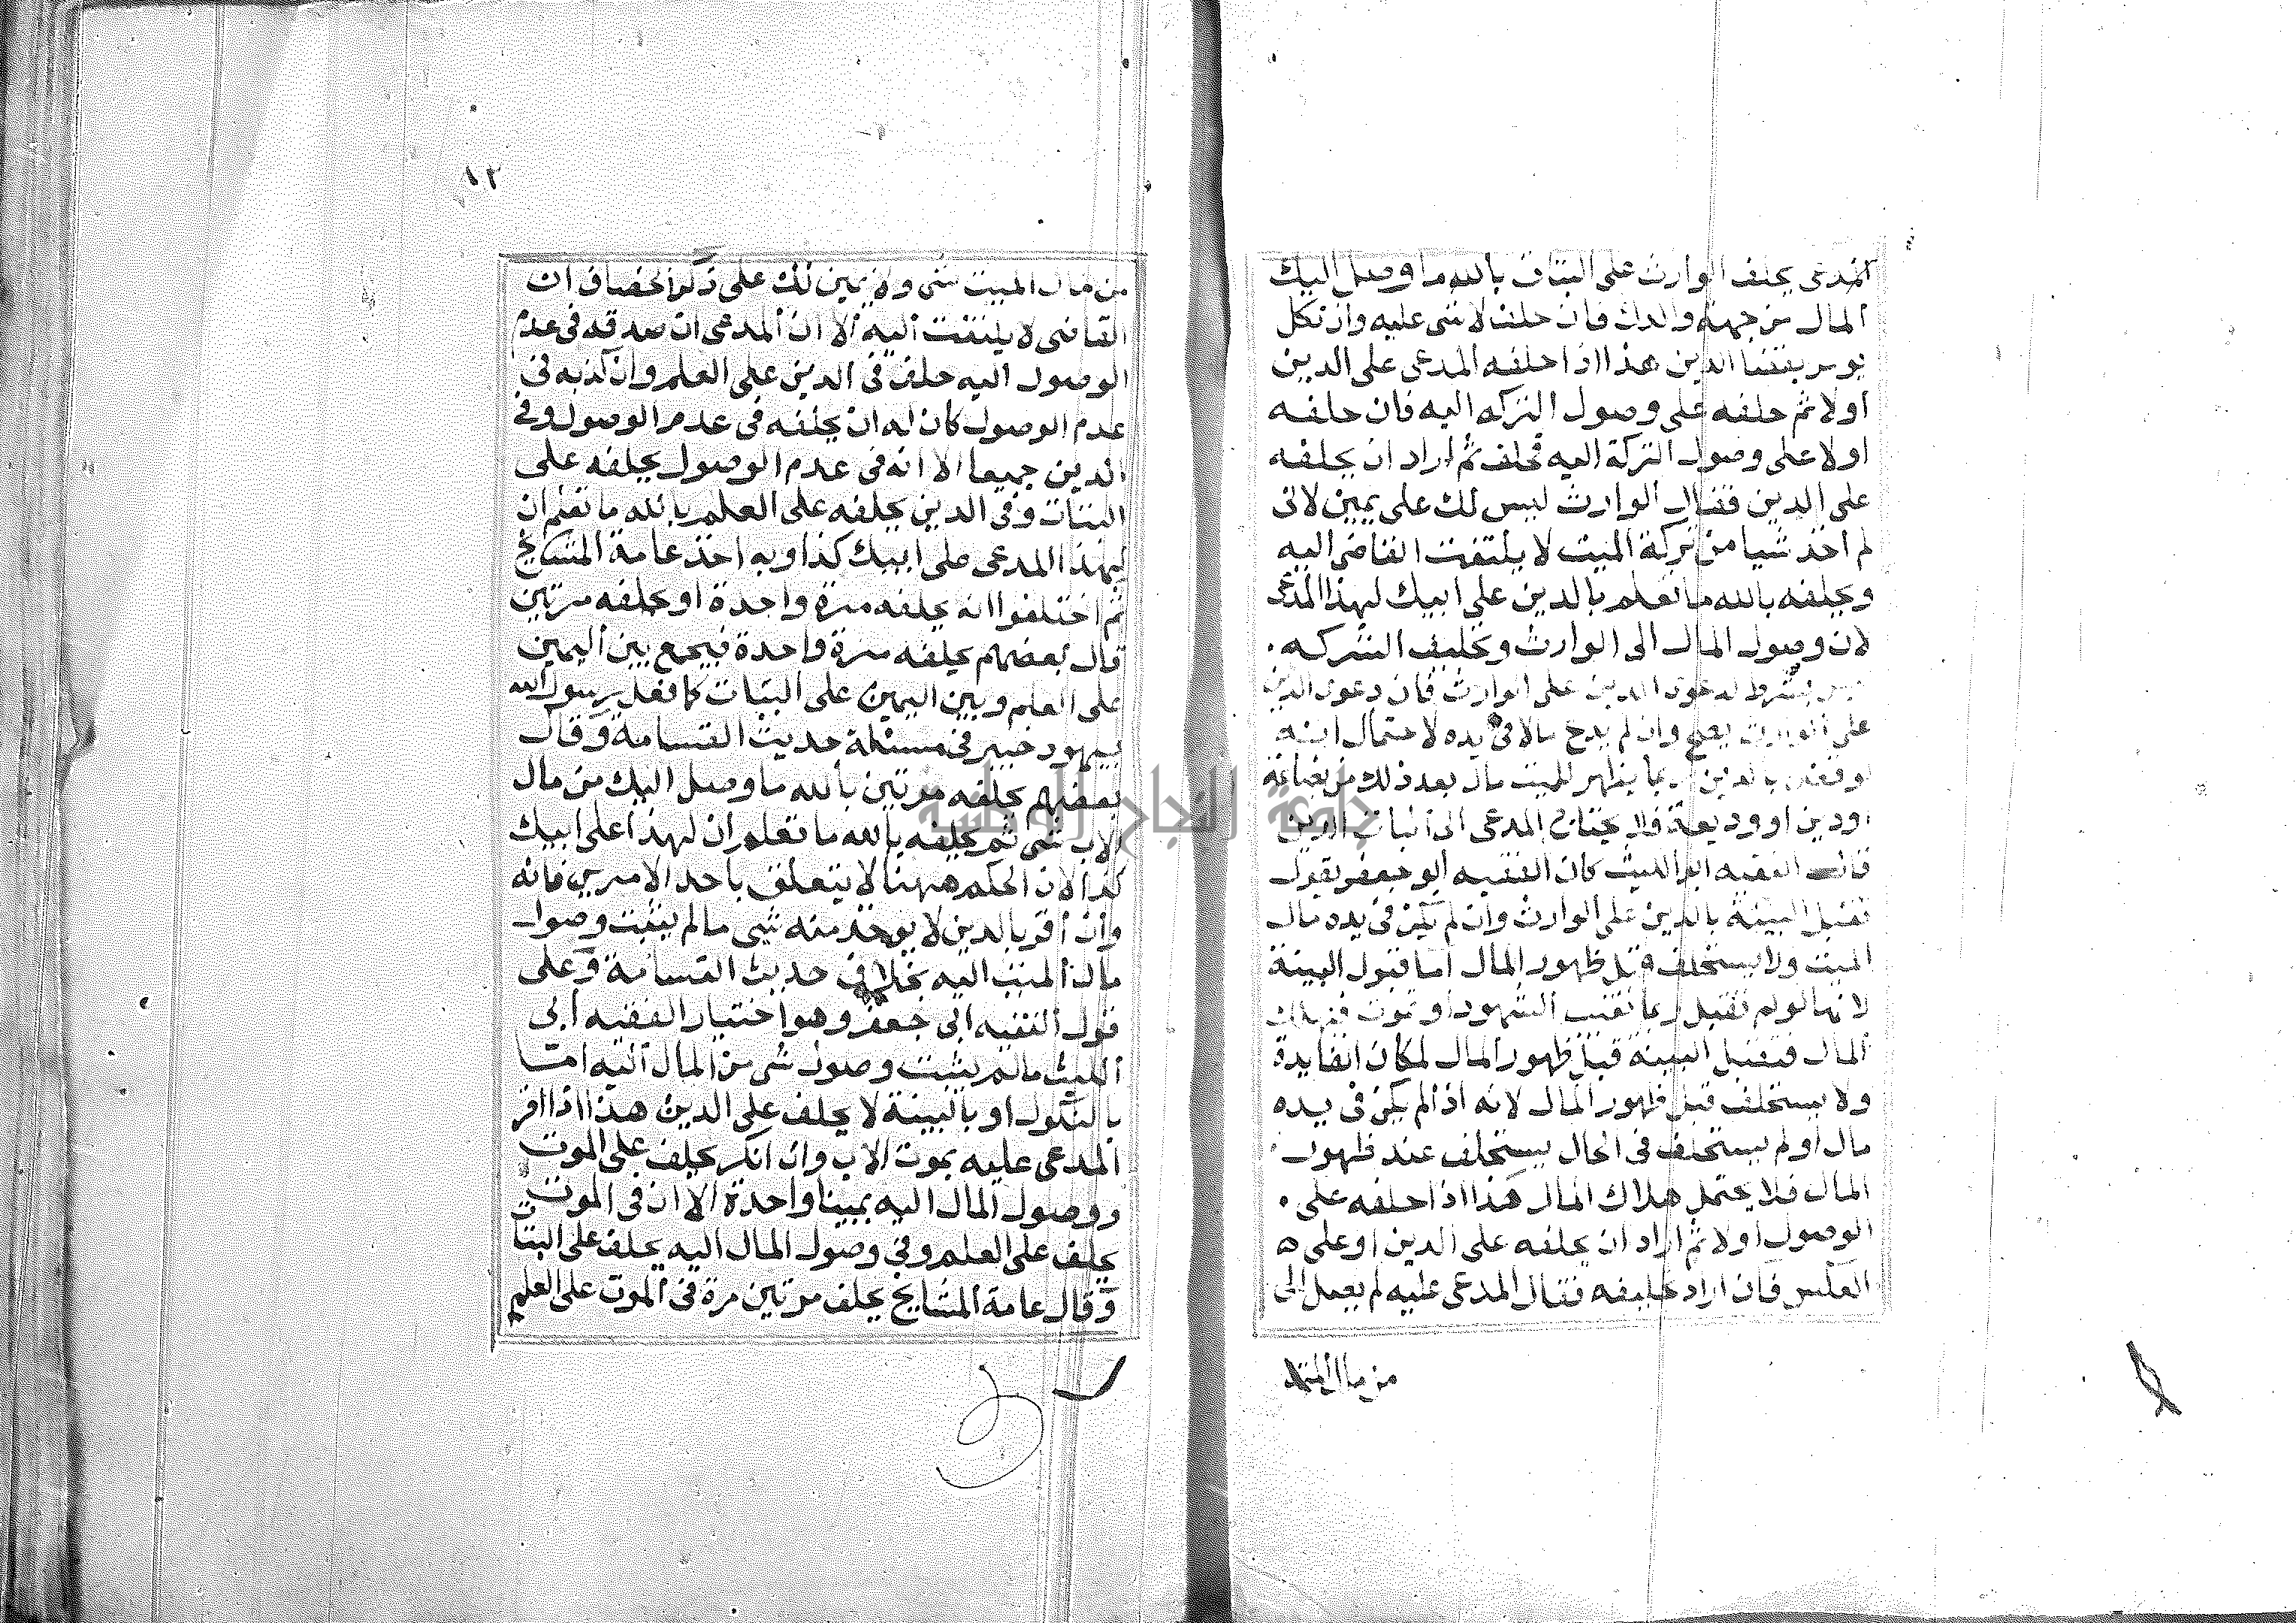 المدعى يحلف الوارث على البتات بالله ما وصل اليك
المال من جهة والدك فان حلف لا شى عليه وان نكل
يومر بقضا الدين هذا اذا حلفه المدعى على الدين
اولا ثم حلفه على وصول التركه اليه فان حلفه
اولا على وصول التركة اليه فحلف ثم اراد ان يحلفه
على الدين فقال الوارث ليس لك على يمين لانى
لم اخذ شيا من تركة الميت لا يلتفت القاضى اليه
ويحلفه بالله ما تعلم بالدين على ابيك لهذا المدعى
لان وصول المال الى الوارث وتحليف التركه
ليس بشرط لدعوى الدين على الوارث فان دعوى الدين
على الوارث يصح وان لم يدع مالا فى يده لاحتمال انه
لو قضى بالدين ربما يظهر للميت مال بعد ذلك من بضاعة
اودين او وديعة فلا يحتاج المدعى الى اثبات الدين
قال الفقيه ابو الليث كان الفقيه ابو جعفر يقول
تقبل البينة بالدين على الوارث وان لم يكن فى يده مال
الميت ولا يستحلف قبل ظهور المال اما قبول البينة
لانها لو لم تقبل ربما تغيب الشهود او تموت فيهلك
المال فتقبل البينة قبل ظهور المال لمكان الفايدة
ولا يستحلف قبل ظهور المال لانه اذا لم يكن فى يده
مال او لم يستحلف فى الحال يستحلف عند ظهور
المال فلا يحتمل هلاك المال هذا اذا حلفه على
الوصول اولا ثم اراد ان يحلفه على الدين او على
العكس فان اراد تحليفه فقال المدعى عليه لم يصل الى
من مال الميت
١٢
من مال الميت شى ولا يمين لك على ذكر الخصاف ان
القاضى لا يلتفت اليه الا ان المدعى ان صدقه فى عدم
الوصول اليه حلف فى الدين على العلم وان كذبه فى
عدم الوصول كان له ان يحلفه فى عدم الوصول وفى
الدين جميعا الا انه فى عدم الوصول يحلفه على
البتات وفى الدين يحلفه على العلم بالله ما تعلم ان
لهذا المدعى على ابيك كذا وبه اخذ عامة المشايخ
ثم اختلفوا انه يحلفه مرة واحدة او يحلفه مرتين
قال بعضهم يحلفه مرة واحدة فيجمع بين اليمين
على العلم وبين اليمين على البتات كما فعل رسول الله
بيهود خيبر فى مسئلة حديث القسامة وقال
بعضهم يحلفه مرتين بالله ما وصل اليك من مال
الاب شى ثم يحلفه بالله ما تعلم ان لهذا على ابيك
كذا لان الحكم ههنا لا يتعلق باحد الامرين فانه
وان اقر بالدين لا يوخذ منه شيى ما لم يثبت وصول
مال الميت اليه بخلاف حديث القسامة وعلى
قول الفقيه ابى جعفر وهو اختيار الفقيه ابى
الليث ما لم يثبت وصول شى من المال اليه امـا
بالنكول او بالبينة لا يحلف على الدين هذا اذا اقر
المدعى عليه بموت الاب وان انكر يحلف على الموت
ووصول المال اليه يمينا واحدة الا ان فى الموت
يحلف على العلم وفى وصول المال اليه يحلف على البتات
وقال عامة المشايخ يحلف مرتين مرة فى الموت على العلم
جامعة النجاح الوطنية